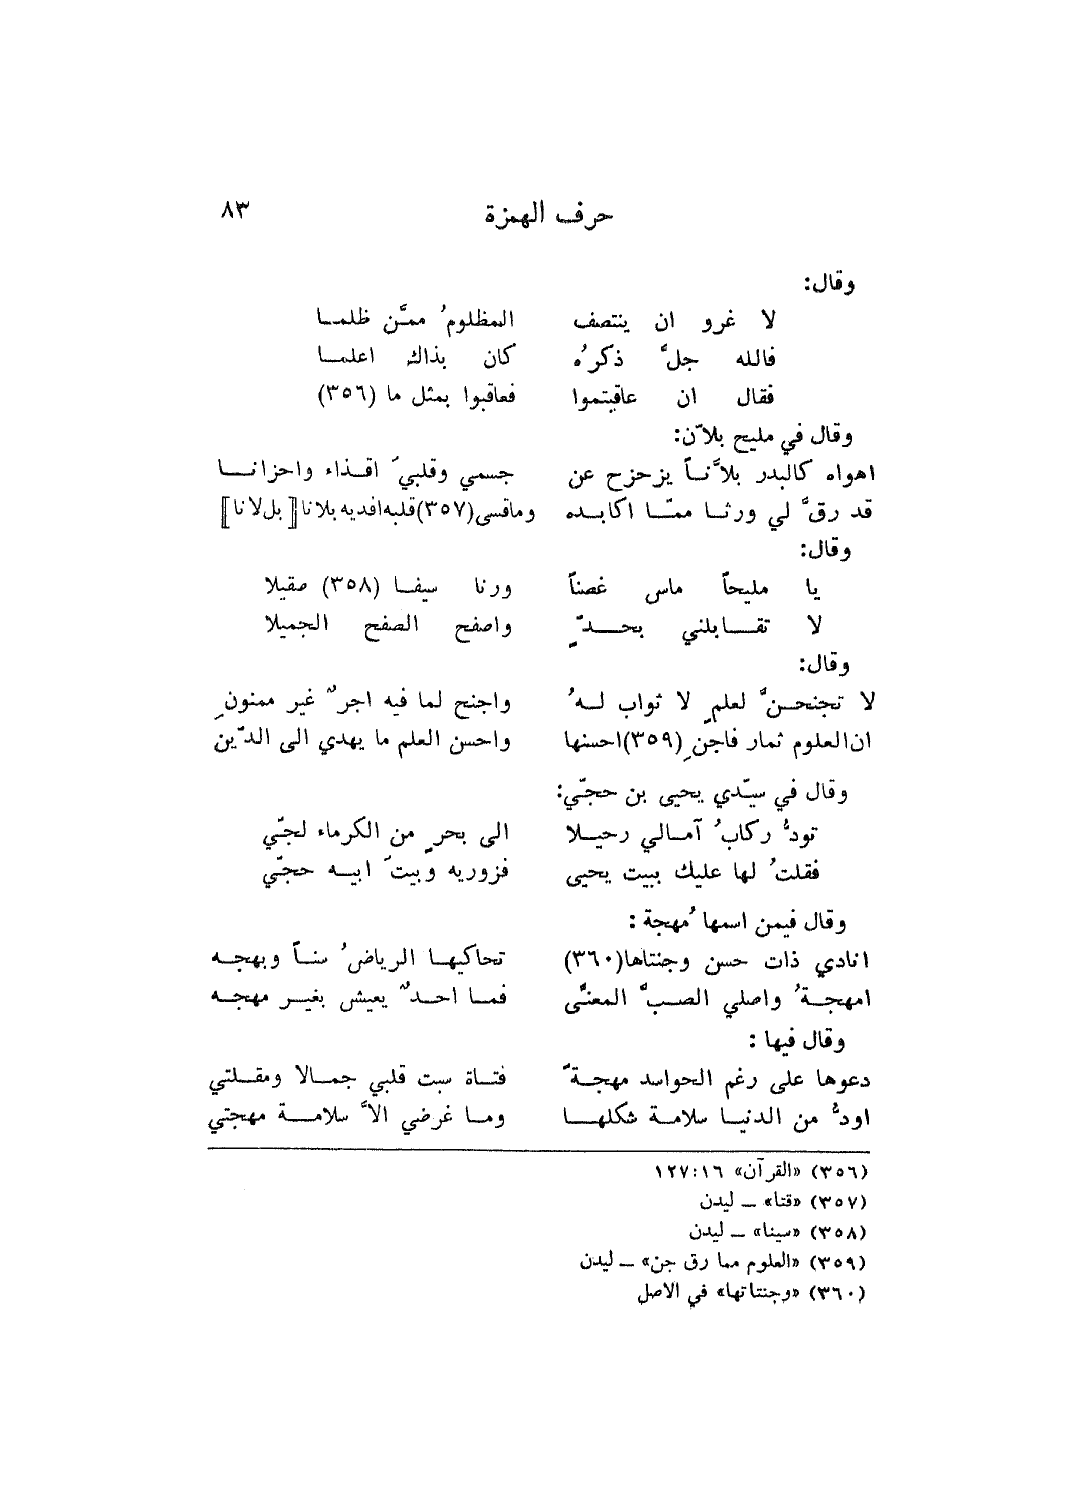 حرف الهمزة ٨٣
وقال:
لا غرو ان ينتصف المظلومُ ممَّن ظلما
فالله جلَّ ذكرُه كان بذاك اعلما
فقال ان عاقبتموا فعاقبوا بمثل ما (٣٥٦)
وقال في مليح بلاّن:
اهواه كالبدر بلاَّناً يزحزح عن جسمي وقلبيَ اقذاء واحزانا
قد رقَّ لي ورثا ممّا اكابده وماقسى(٣٥٧)قلبه افديه بلانا [بل لانا]
وقال:
يا مليحاً ماس غصناً ورنا سيفا (٣٥٨) صقيلا
لا تقابلني بحدٍّ واصفح الصفح الجميلا
وقال:
لا تجنحنَّ لعلمٍ لا ثواب لهُ واجنح لما فيه اجرٌ غير ممنونِ
ان العلوم ثمار فاجنِ(٣٥٩)احسنها واحسن العلم ما يهدي الى الدّين
وقال في سيّدي يحيى بن حجّي:
تودُّ ركابُ آمالي رحيلا الى بحرٍ من الكرماء لجّي
فقلتُ لها عليك ببيت يحيى فزوريه وبيتَ ابيه حجّي
وقال فيمن اسمها مُهجة :
انادي ذات حسن وجنتاها(٣٦٠) تحاكيها الرياضُ سناً وبهجه
امهجةُ واصلي الصبَّ المعنَّى فما احدٌ يعيش بغير مهجه
وقال فيها :
دعوها على رغم الحواسد مهجةً فتاة سبت قلبي جمالا ومقلتي
اودُّ من الدنيا سلامة شكلها وما غرضي الاَّ سلامة مهجتي
(٣٥٦) «القرآن» ١٢٧:١٦
(٣٥٧) «قتا» ــ ليدن
(٣٥٨) «سينا» ــ ليدن
(٣٥٩) «العلوم مما رق جن» ــ ليدن
(٣٦٠) «وجنتاتها» في الاصل